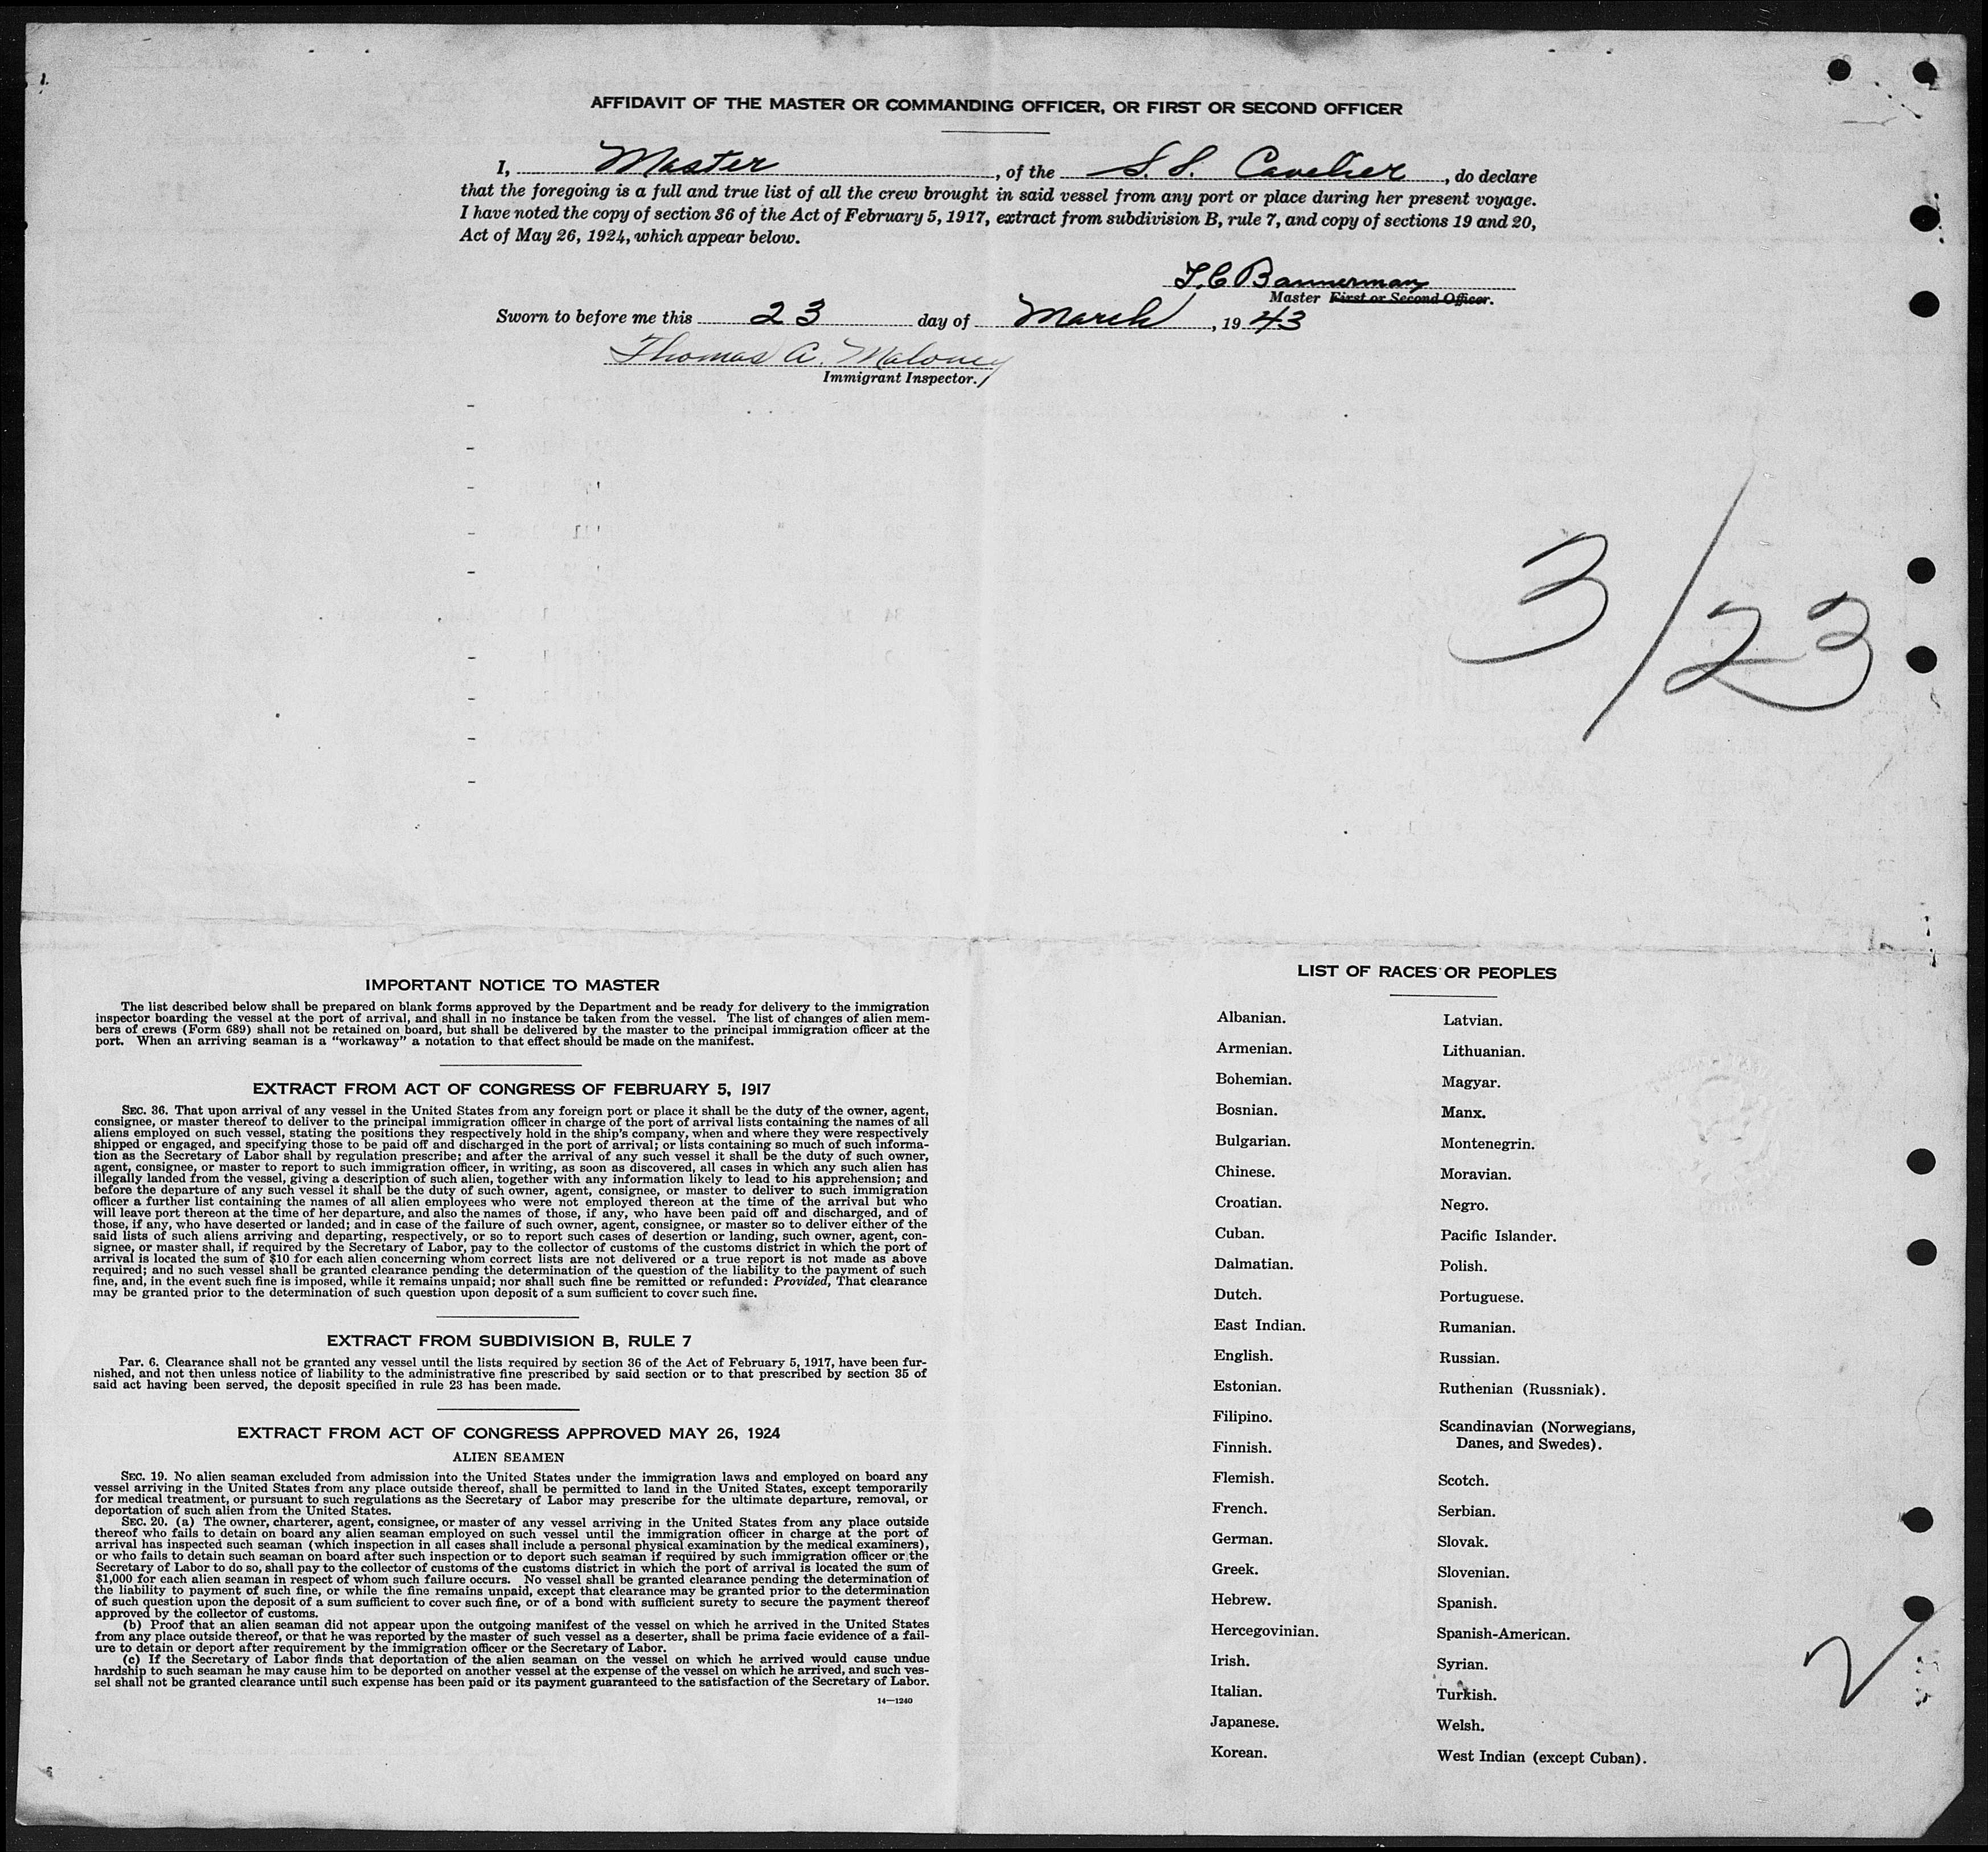 AFFIDAVIT OF THE MASTER OR COMMANDING OFFICER, OR FIRST OR SECOND OFFICER
I, Master, of the S. S. Cavelier, do declare
that the foregoing is a full and true list of all the crew brought in said vessel from any port or place during her present voyage.
I have noted the copy of section 36 of the Act of February 5, 1917, extract from subdivision B, rule 7, and copy of sections 19 and 20,
Act of May 26, 1924, which appear below.
T. C Bannerman
Master First or Second Officer.
Sworn to before me this 23 day of March, 19 43
Thomas A. Maloney
Immigrant Inspector.
3/23
IMPORTANT NOTICE TO MASTER
The list described below shall be prepared on blank forms approved by the Department and be ready for delivery to the immigration
inspector boarding the vessel at the port of arrival, and shall in no instance be taken from the vessel. The list of changes of alien mem-
bers of crews (Form 689) shall not be retained on board, but shall be delivered by the master to the principal immigration officer at the
port. When an arriving seaman is a "workaway" a notation to that effect should be made on the manifest.
EXTRACT FROM ACT OF CONGRESS OF FEBRUARY 5, 1917
SEC. 36. That upon arrival of any vessel in the United States from any foreign port or place it shall be the duty of the owner, agent,
consignee, or master thereof to deliver to the principal immigration officer in charge of the port of arrival lists containing the names of all
aliens employed on such vessel, stating the positions they respectively hold in the ship's company, when and where they were respectively
shipped or engaged, and specifying those to be paid off and discharged in the port of arrival; or lists containing so much of such informa-
tion as the Secretary of Labor shall by regulation prescribe; and after the arrival of any such vessel it shall be the duty of such owner,
agent, consignee, or master to report to such immigration officer, in writing, as soon as discovered, all cases in which any such alien has
illegally landed from the vessel, giving a description of such alien, together with any information likely to lead to his apprehension; and
before the departure of any such vessel it shall be the duty of such owner, agent, consignee, or master to deliver to such immigration
officer a further list containing the names of all alien employees who were not employed thereon at the time of the arrival but who
will leave port thereon at the time of her departure, and also the names of those, if any, who have been paid off and discharged, and of
those, if any, who have deserted or landed; and in case of the failure of such owner, agent, consignee, or master so to deliver either of the
said lists of such aliens arriving and departing, respectively, or so to report such cases of desertion or landing, such owner, agent, con-
signee, or master shall, if required by the Secretary of Labor, pay to the collector of customs of the customs district in which the port of
arrival is located the sum of $10 for each alien concerning whom correct lists are not delivered or a true report is not made as above
required; and no such vessel shall be granted clearance pending the determination of the question of the liability to the payment of such
fine, and, in the event such fine is imposed, while it remains unpaid; nor shall such fine be remitted or refunded: Provided, That clearance
may be granted prior to the determination of such question upon deposit of a sum sufficient to cover such fine.
EXTRACT FROM SUBDIVISION B, RULE 7
Par. 6. Clearance shall not be granted any vessel until the lists required by section 36 of the Act of February 5, 1917, have been fur-
nished, and not then unless notice of liability to the administrative fine prescribed by said section or to that prescribed by section 35 of
said act having been served, the deposit specified in rule 23 has been made.
EXTRACT FROM ACT OF CONGRESS APPROVED MAY 26, 1924
ALIEN SEAMEN
SEC. 19. No alien seaman excluded from admission into the United States under the immigration laws and employed on board any
vessel arriving in the United States from any place outside thereof, shall be permitted to land in the United States, except temporarily
for medical treatment, or pursuant to such regulations as the Secretary of Labor may prescribe for the ultimate departure, removal, or
deportation of such alien from the United States.
SEC. 20. (a) The owner, charterer, agent, consignee, or master of any vessel arriving in the United States from any place outside
thereof who fails to detain on board any alien seaman employed on such vessel until the immigration officer in charge at the port of
arrival has inspected such seaman (which inspection in all cases shall include a personal physical examination by the medical examiners),
or who fails to detain such seaman on board after such inspection or to deport such seaman if required by such immigration officer or the
Secretary of Labor to do so, shall pay to the collector of customs of the customs district in which the port of arrival is located the sum of
$1,000 for each alien seaman in respect of whom such failure occurs. No vessel shall be granted clearance pending the determination of
the liability to payment of such fine, or while the fine remains unpaid, except that clearance may be granted prior to the determination
of such question upon the deposit of a sum sufficient to cover such fine, or of a bond with sufficient surety to secure the payment thereof
approved by the collector of customs.
(b) Proof that an alien seaman did not appear upon the outgoing manifest of the vessel on which he arrived in the United States
from any place outside thereof, or that he was reported by the master of such vessel as a deserter, shall be prima facie evidence of a fail-
ure to detain or deport after requirement by the immigration officer or the Secretary of Labor.
(c) If the Secretary of Labor finds that deportation of the alien seaman on the vessel on which he arrived would cause undue
hardship to such seaman he may cause him to be deported on another vessel at the expense of the vessel on which he arrived, and such ves-
sel shall not be granted clearance until such expense has been paid or its payment guaranteed to the satisfaction of the Secretary of Labor.
14—1240
LIST OF RACES OR PEOPLES
Albanian.
Armenian.
Bohemian.
Bosnian.
Bulgarian.
Chinese.
Croatian.
Cuban.
Dalmatian.
Dutch.
East Indian.
English.
Estonian.
Filipino.
Finnish.
Flemish.
French.
German.
Greek.
Hebrew.
Hercegovinian.
Irish.
Italian.
Japanese.
Korean.
Latvian.
Lithuanian.
Magyar.
Manx.
Montenegrin.
Moravian.
Negro.
Pacific Islander.
Polish.
Portuguese.
Rumanian.
Russian.
Ruthenian (Russniak).
Scandinavian (Norwegians,
Danes, and Swedes).
Scotch.
Serbian.
Slovak.
Slovenian.
Spanish.
Spanish-American.
Syrian.
Turkish.
Welsh.
West Indian (except Cuban).